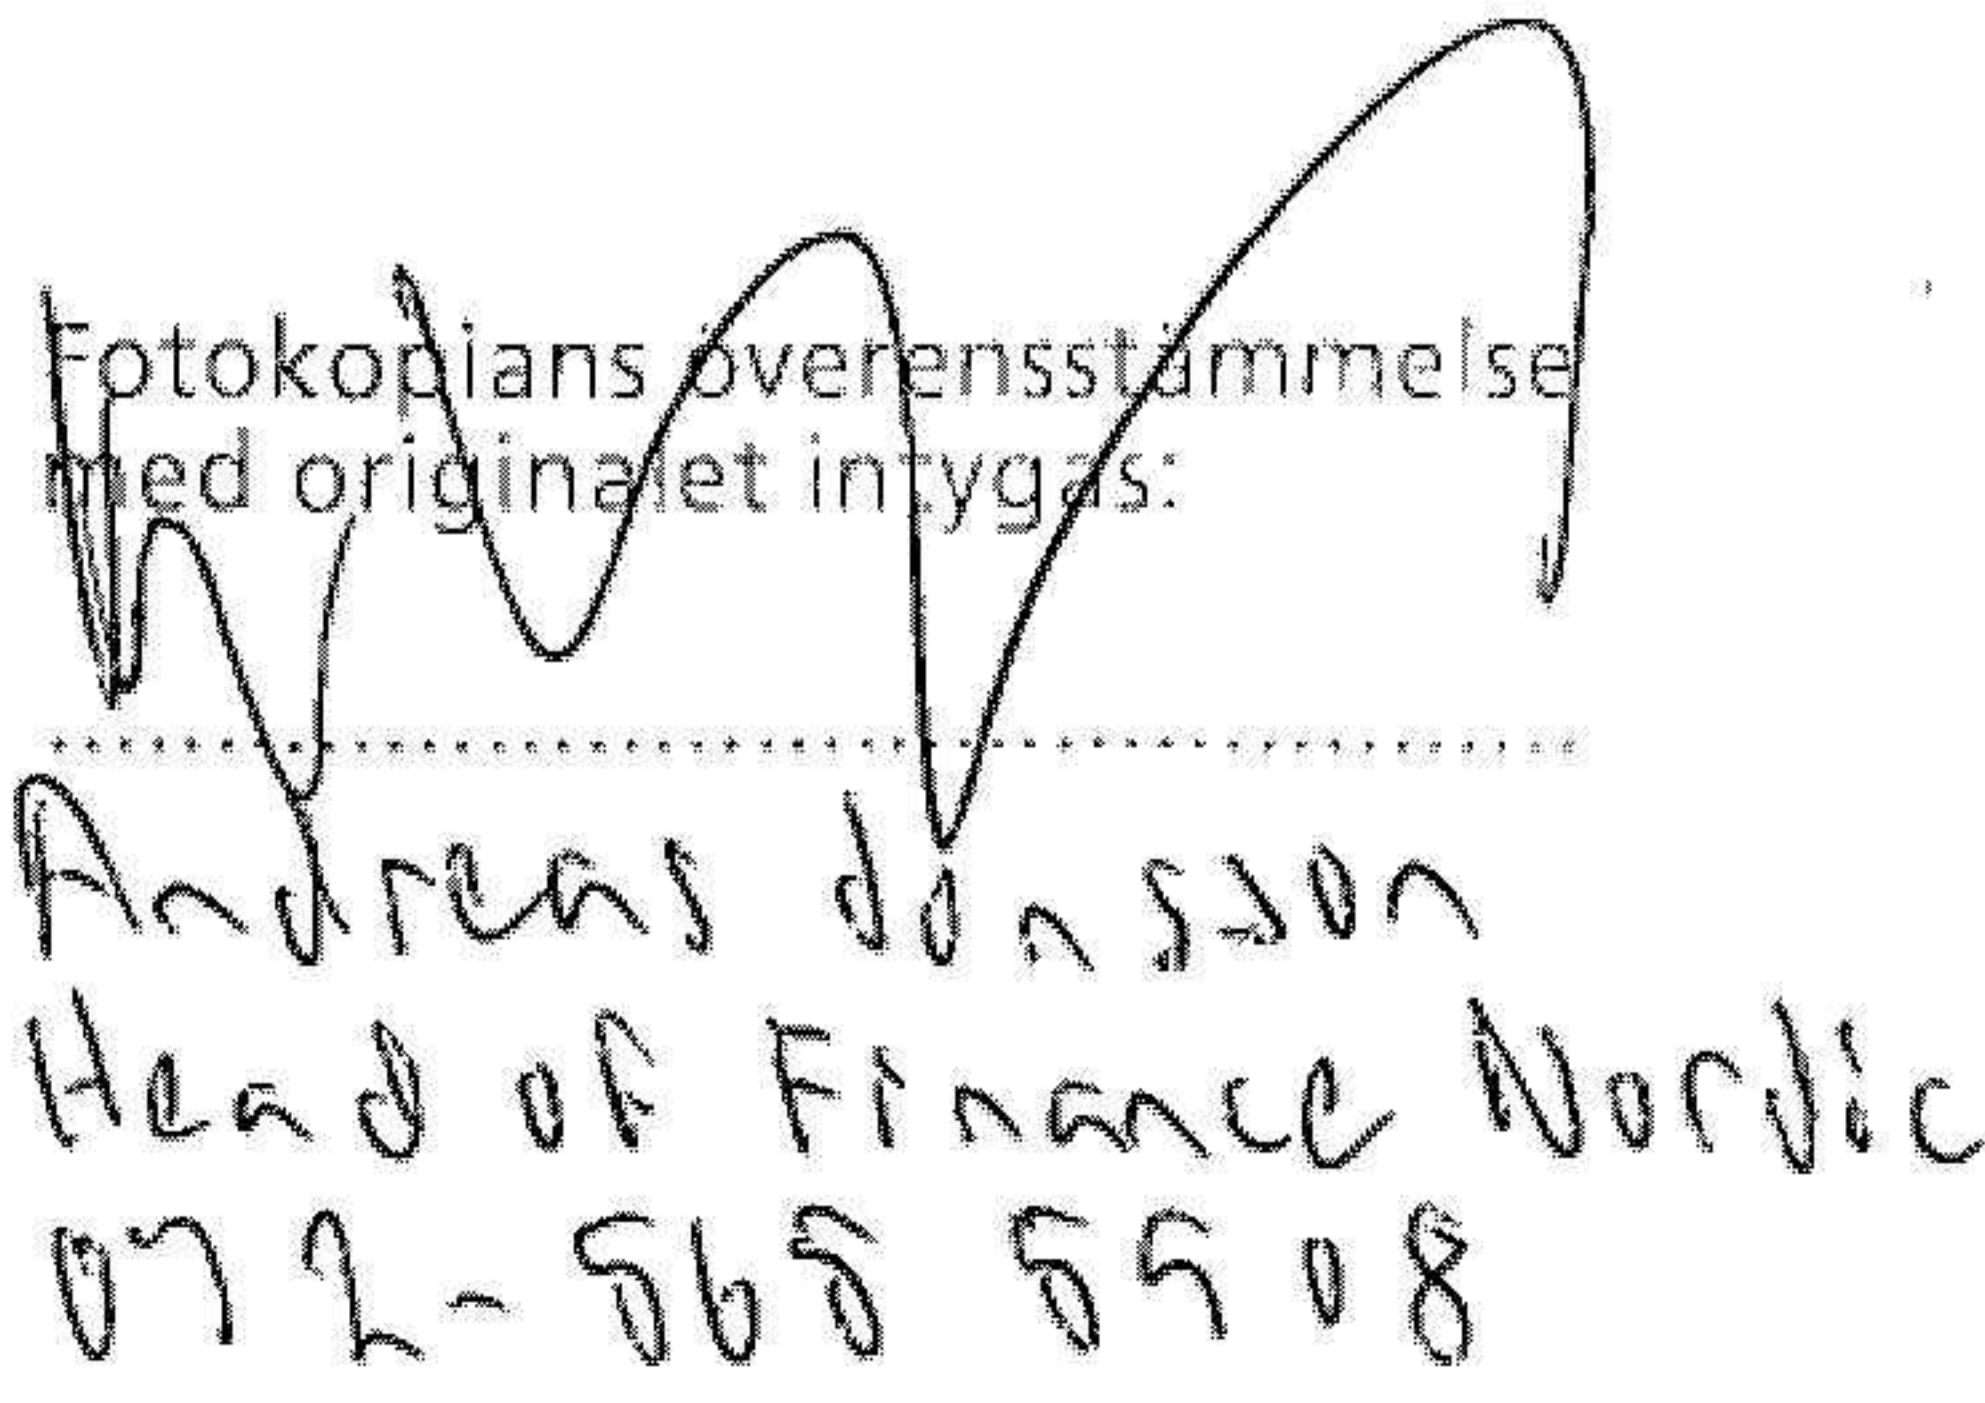 Fotokopians överensstämmelse
med originalet intygas:
Andreas Jonsson
Head of Finance Nordic
072-565 5508